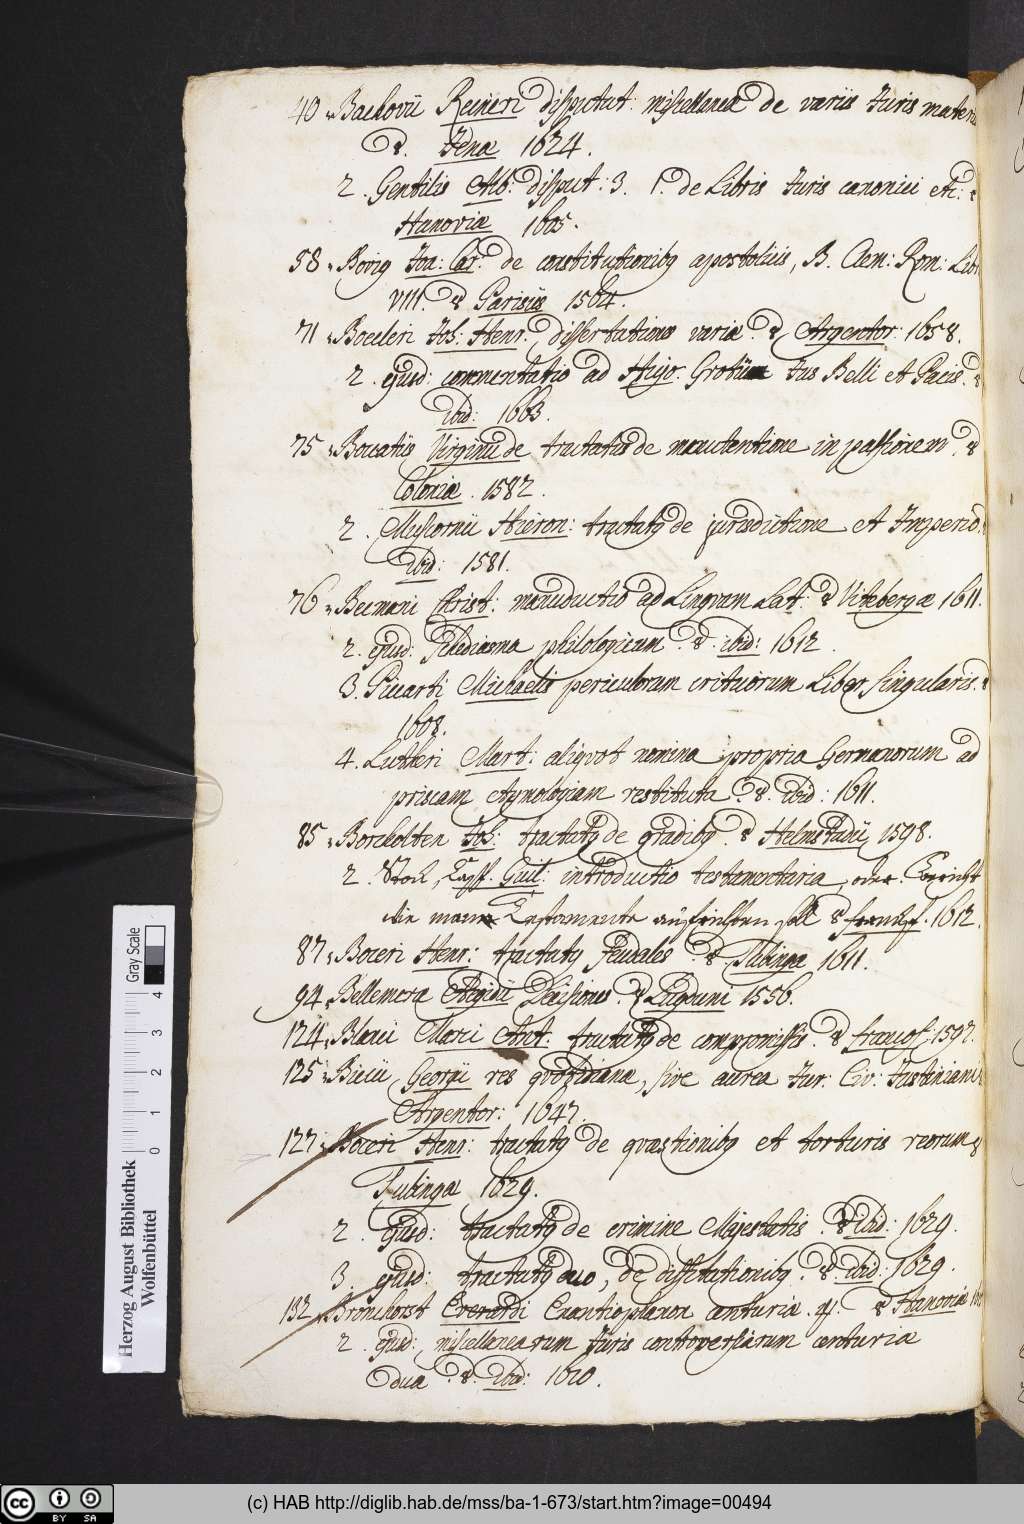 40. Bachovii Reineri disputat: miscellanea de variis Juris mater
8. Jenae 1624.
2. Gentilis Alb: disput: 3. 1. de Libris Juris canonici etc: 8
Hanoviae 1605.
58. Bovig Joa: Car: de constitutionibg apostoliiis, B. Clem: Rom: Lib
VIII. 8 Parisiis 1564.
71. Boecleri Joh: Henr: dissertationes variae. 8. Argentor: 1658.
2. ejusd: commentatio ad Hugo. Grotium Jus Belli et Pacis. 8
ibid: 1663.
75. Boccatiis Virginii de tractatus de manutentione in possionem. 8
Coloniae. 1582.
2. Muscornii Hieron: tractatg de jurisdictione et Imperio.
ibid: 1581.
76. Becmani Christ: manuductio ad Linguam Lat: 8 Vitebergae 1611.
2. ejusd: Schediasma philologicum. 8. ibid: 1612.
3. Piccarti Michaelis periculorum criticorum Liber singularis. 8
1608.
4. Lutheri Mart: aliquot nomina propria Germanorum ad
priscam etymologiam restituta. 8. ibid: 1611.
85. Borcholten Joh: tractatg de gradibg. 8 Helmstadii 1598.
2. Guil: introductio testamentaria, oder Bericht
wie man Testamente aufrichten soll 8 franckf. 1612.
87. Boceri Henr: tractatg feudales. 8. Tubingae 1611.
94. Bellemera Aegidii Decisiones. 8 Lugduni 1556.
124. Blanci Marci Ant. tractatg de compromissis. 8 francof: 1597.
125. Biccii Georgii res quotidianae, sive aurea Jur: Civ: Justiniani
Argentor: 1647.
127. Boceri Henr: tractatg de quaestionibg et torturis reorum 8
Tubingae 1629.
2. ejusd: tractatg de crimine Majestatis. 8 ibid: 1629.
3. ejusd: tractatg duo, de diffidationibg. 8. ibid: 1629.
132. Bronchorst Everardi Enantiophanon centuriae. 8 Hanoviae
2. ejusd: miscellanearum Juris controversiarum centuriae
duae. 8. ibid: 1610.
Gray Scale
4
3
2
1
0
Herzog August Bibliothek
Wolfenbüttel
cc BY SA
(c) HAB http://diglib.hab.de/mss/ba-1-673/start.htm?image=00494